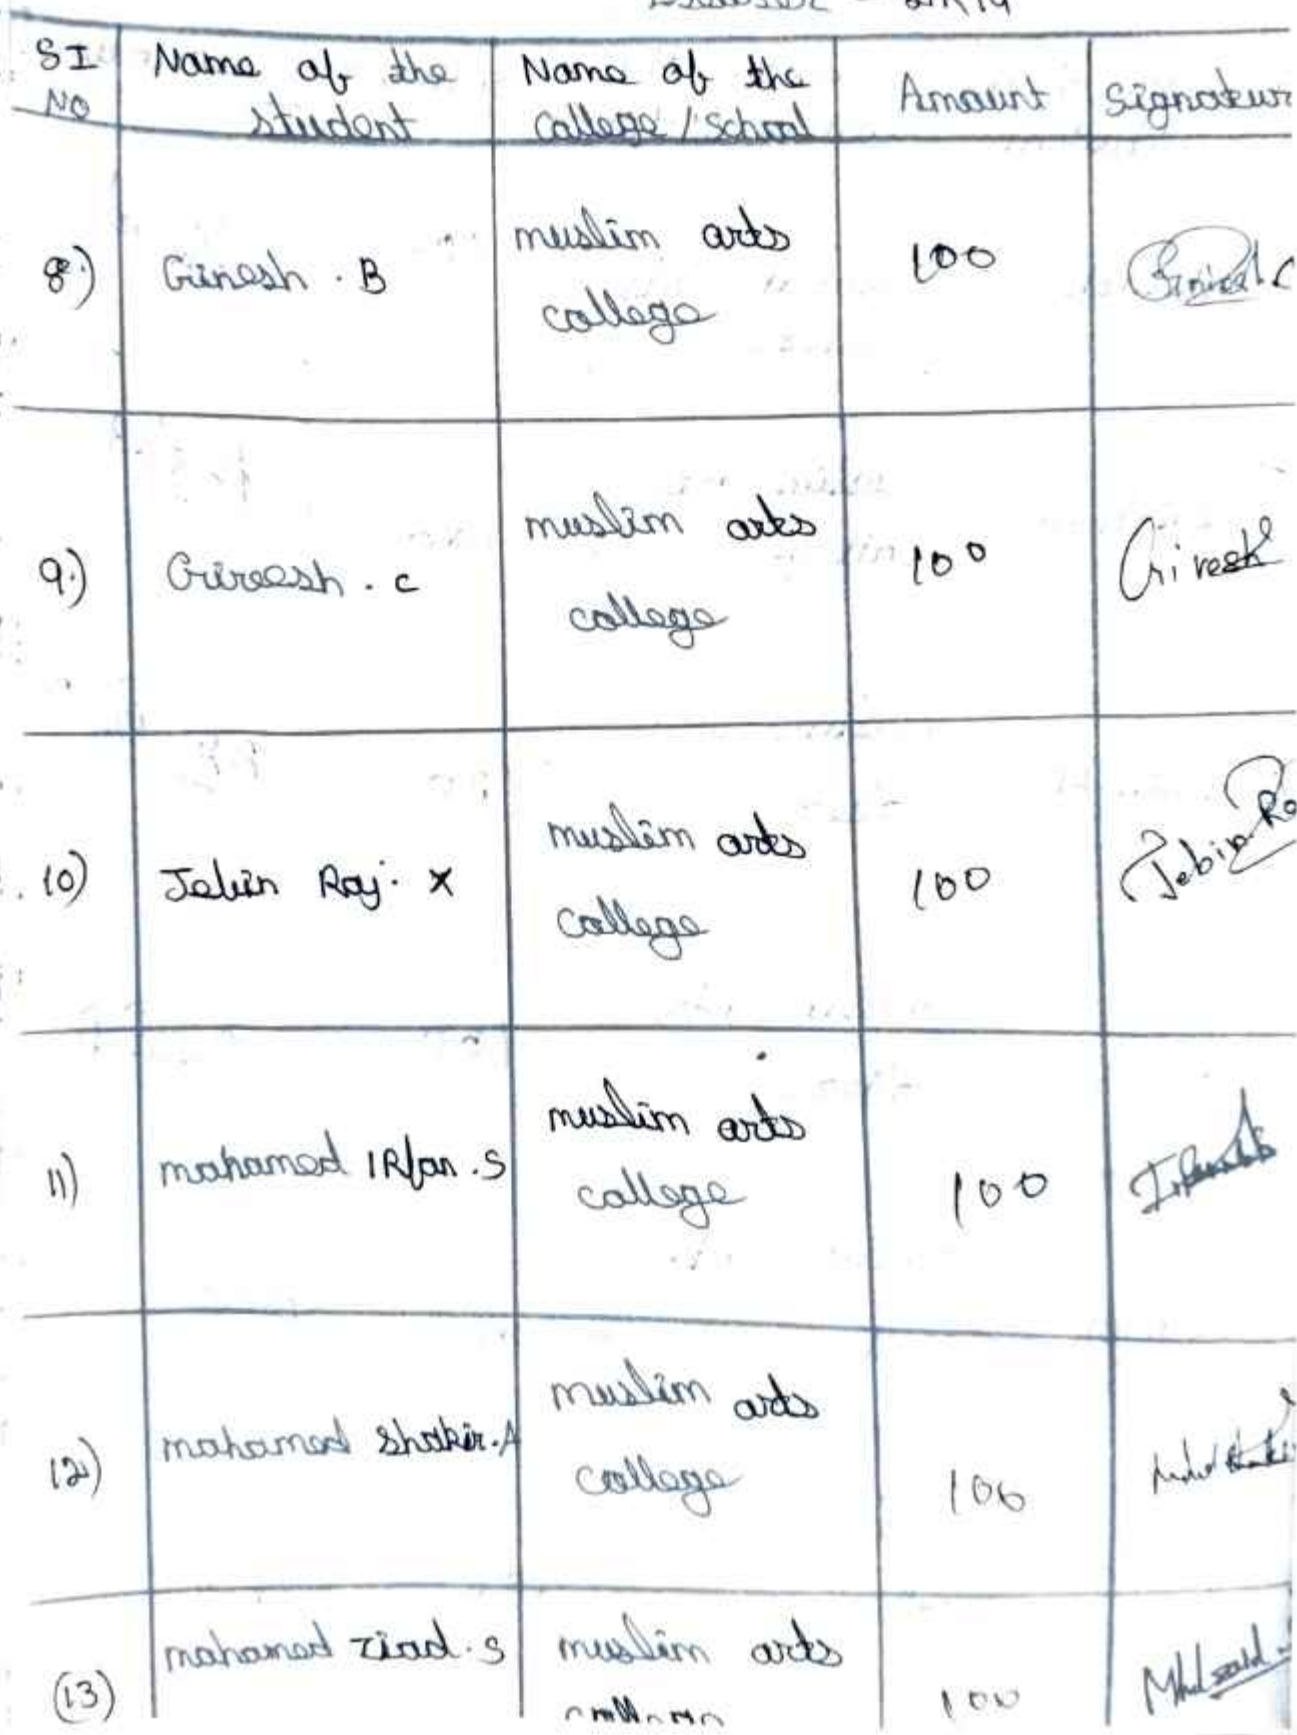 SI NO | Name of the student | Name of the college / School | Amount | Signatur
8) | Ginesh . B | muslim arts college | 100
9.) | Gireesh . c | muslim arts college | 100 | Girresh
10) | Jebin Raj . X | muslim arts college | 100 | Jebin Ra
11) | mohamed IRfan . S | muslim arts college | 100
12) | mohamed Shakir . A | muslim arts college | 100
(13) | mohamed ziad . S | muslim arts college | 100